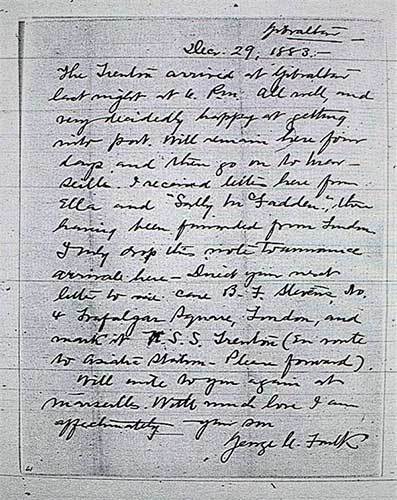 Gibraltar
Dec. 29, 1883.-
The Trenton arrived at Gibraltar
last night at 6. P.m. All well, and
very decidedly happy at getting
into port. Will remain here four
days and then go on to Mar-
seille. I received letters here from
Ella and "Sally McFadden", they
having been forwarded from London.
I only drop this note to announce
arrival here - Direct your next
letter to me care B. F. Stevens, No.
4 Trafalgar Square, London, and
mark it U.S.S. Trenton (En route
to Asiatic Station - Please forward).
Will write to you again at
Marseilles. With much love I am
affectionately your son
George C. Foulk